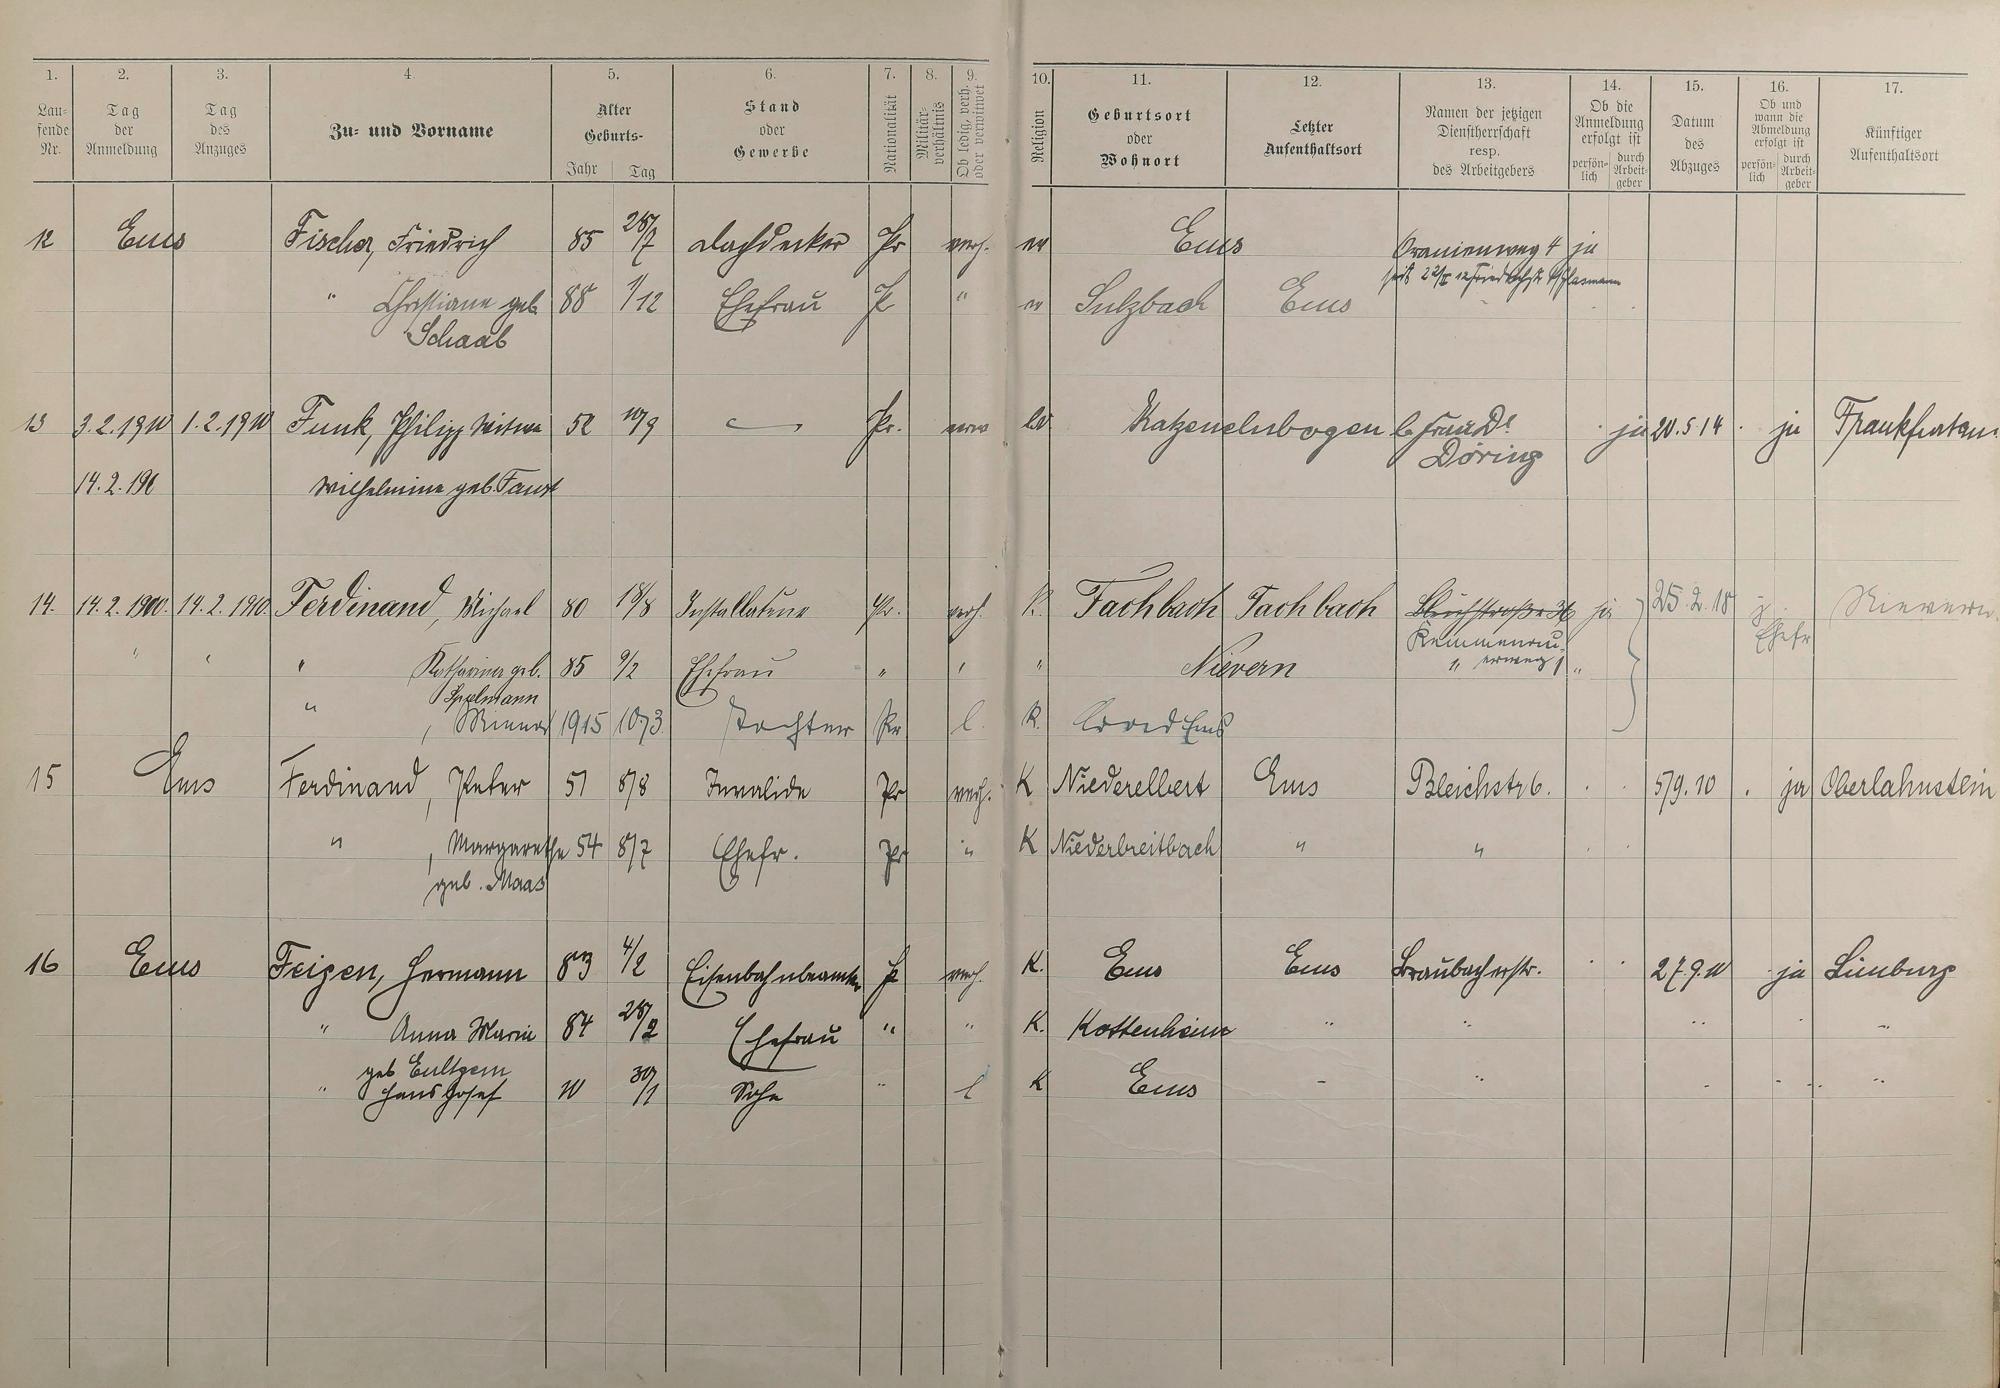 1. 2. 3. 4 5. 6. 7. 8. 9. 10. 11. 12. 13. 14. 15. 16. 17.
Lau-fende Nr. Tag der Anmeldung Tag des Anzuges Zu- und Vorname Alter Geburts- Jahr Tag Stand oder Gewerbe Nationalität Militär-verhältnis Ob ledig, verh. oder verwitwet Religion Geburtsort oder Wohnort Letzter Aufenthaltsort Namen der jetzigen Dienstherrschaft resp. des Arbeitgebers Ob die Anmeldung erfolgt ist persön-lich durch Arbeit-geber Datum des Abzuges Ob und wann die Abmeldung erfolgt ist persön-lich durch Arbeit-geber Künftiger Aufenthaltsort
12 Ems Fischer, Friedrich 85 28/7 Dachdecker Pr verh. ev Ems Oranienweg 4 ja
" Christiane geb. 88 1/12 Ehefrau P " ev Sulzbach Ems
Schaab
13 3.2.1910 1.2.1910 Funk, Philipp Witwe 52 10/9 Pr. verw Katzenelnbogen b. Frau Dr ja 20.5.14 ja Frankfurt
Döring
14.2.190 Wilhelmine geb. Faust
14. 14.2.1900. 14.2.1910. Ferdinand, Michael 80 18/8 Installateur Pr. verh. K. Fachbach Fachbach Bleichstraße 36 ja 25.2.18 Nievern
Ehefr
" " " Katharina geb. 85 9/2 Ehefrau " " " Nievern " erweg 1 "
Spelmann
" , 1915 10/3 Tochter Pr l. K. Bad Ems
15 Ems Ferdinand, Peter 51 8/8 Invalide Pr verh. K Niederelbert Ems Bleichstr 6. 5/9.10 ja Oberlahnstein
" , Margarethe 54 8/7 Ehefr. Pr " K Niederbreitbach " "
geb. Maas
16 Ems Feigen, Hermann 83 4/2 Eisenbahnbeamter P verh. K. Ems Ems Braubacherstr. 27.9.10 ja Limburg
" Anna Maria 84 28/2 Ehefrau " " K. Kottenheim " " " "
geb Eultgem
" Hans Josef 10 30/1 Sohn " l K Ems - " - " "